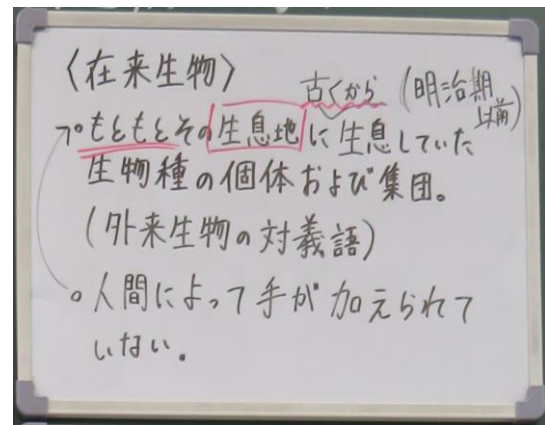 〈在来生物〉
古くから(明治期以前)
・もともとその生息地に生息していた
生物種の個体および集団。
(外来生物の対義語)
・人間によって手が加えられて
いない。